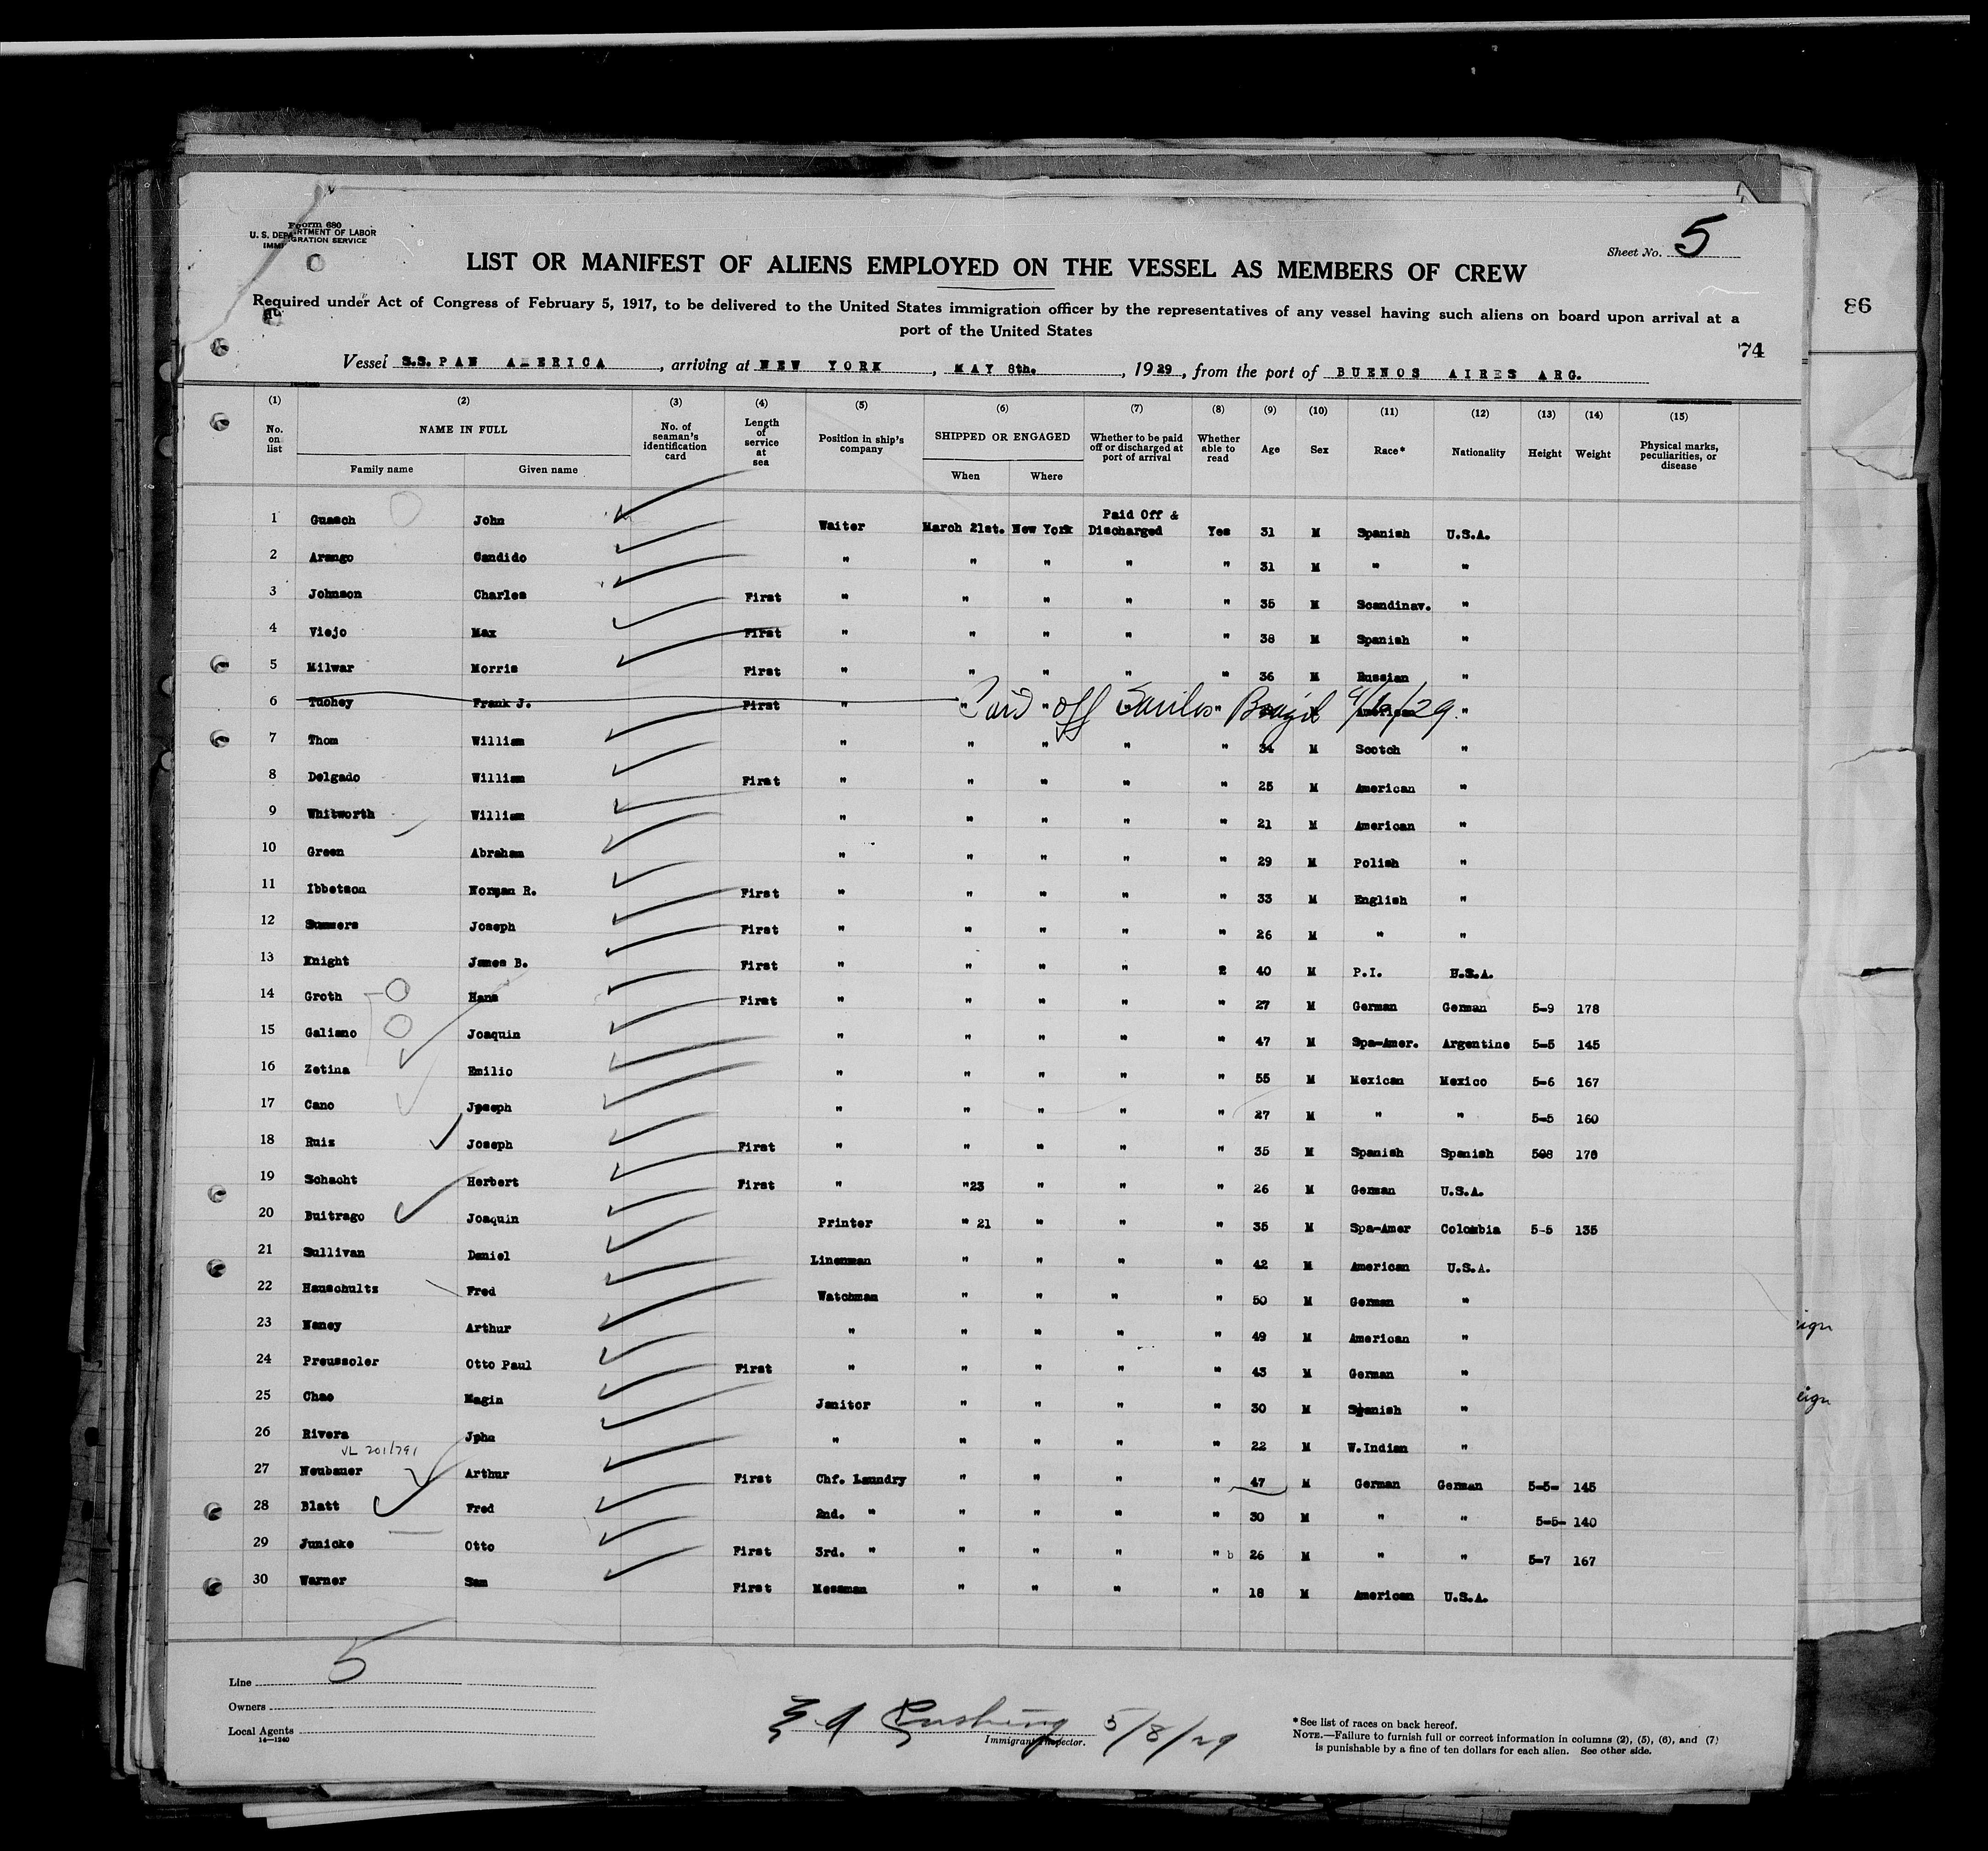 Form 680
U. S. DEPARTMENT OF LABOR
IMMIGRATION SERVICE
Sheet No. 5
LIST OR MANIFEST OF ALIENS EMPLOYED ON THE VESSEL AS MEMBERS OF CREW
Required under Act of Congress of February 5, 1917, to be delivered to the United States immigration officer by the representatives of any vessel having such aliens on board upon arrival at a
port of the United States
86
74
Vessel S.S. PAN AMERICA, arriving at NEW YORK, MAY 8th., 1929, from the port of BUENOS AIRES ARG.
(1) (2) (3) (4) (5) (6) (7) (8) (9) (10) (11) (12) (13) (14) (15)
No. on list NAME IN FULL Family name Given name No. of seaman's identification card Length of service at sea Position in ship's company SHIPPED OR ENGAGED When Where Whether to be paid off or discharged at port of arrival Whether able to read Age Sex Race* Nationality Height Weight Physical marks, peculiarities, or disease
1 Guasch John Waiter March 21st. New York Paid Off & Discharged Yes 31 M Spanish U.S.A.
2 Arango Candido " " " " " 31 M " "
3 Johnson Charles First " " " " " 35 M Scandinav. "
4 Viejo Max First " " " " " 38 M Spanish "
5 Milwar Morris First " " " " " 36 M Russian "
6 Tuohey Frank J. First " " " " " American "
Paid off Santos Brazil /29
7 Thom William " " " " " 34 M Scotch "
8 Delgado William First " " " " " 25 M American "
9 Whitworth William " " " " " 21 M American "
10 Green Abraham " " " " " 29 M Polish "
11 Ibbetson Norman R. First " " " " " 33 M English "
12 Summers Joseph First " " " " " 26 M " "
13 Knight James B. First " " " " 40 M P.I. U.S.A.
14 Groth Hans First " " " " " 27 M German German 5-9 178
15 Galiano Joaquin " " " " " 47 M Spa-Amer. Argentine 5-5 145
16 Zetina Emilio " " " " " 55 M Mexican Mexico 5-6 167
17 Cano Jpseph " " " " " 27 M " " 5-5 160
18 Ruiz Joseph First " " " " " 35 M Spanish Spanish 508 178
19 Schacht Herbert First " "23 " " " 26 M German U.S.A.
20 Buitrago Joaquin Printer " 21 " " " 35 M Spa-Amer Colombia 5-5 135
21 Sullivan Daniel Linenman " " " " 42 M American U.S.A.
22 Hauschultz Fred Watchman " " " " 50 M German "
23 Naney Arthur " " " " " 49 M American "
24 Preussoler Otto Paul First " " " " " 43 M German "
25 Chao Magin Janitor " " " " 30 M Spanish "
26 Rivera Jphn " " " " " 22 M W.Indian "
VL 201/791
27 Neubauer Arthur First Chf. Laundry " " " " 47 M German German 5-5- 145
28 Blatt Fred 2nd. " " " " " 30 M " " 5-5- 140
29 Junicke Otto First 3rd. " " " " " b 26 M " " 5-7 167
30 Warner Sam First Messman " " " " 18 M American U.S.A.
eign
eign
5
Line
Owners
Local Agents
14—1240
5/8/29
Immigrant Inspector.
*See list of races on back hereof.
NOTE.—Failure to furnish full or correct information in columns (2), (5), (6), and (7)
is punishable by a fine of ten dollars for each alien. See other side.